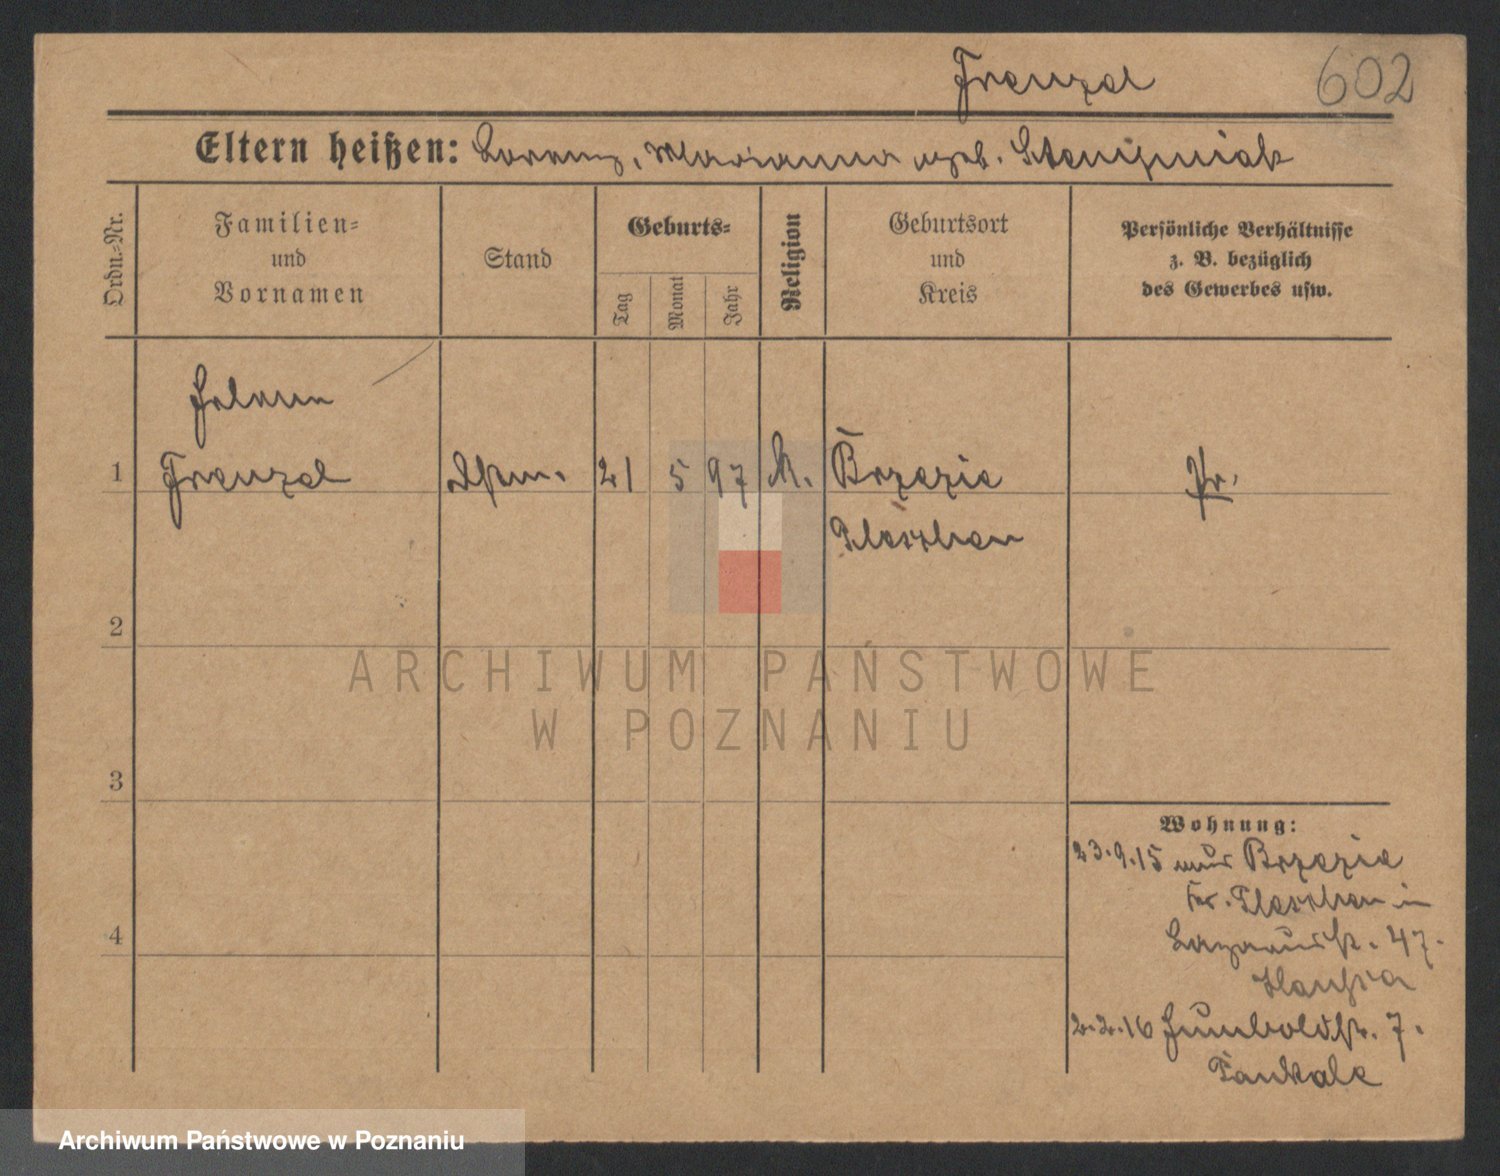 Frenzel 602
Eltern heißen: Lorenz, Marianna geb.
Ordn.=Nr.
Familien=
und
Vornamen
Stand
Geburts=
Tag
Monat
Jahr
Religion
Geburtsort
und
Kreis
Persönliche Verhältnisse
z. B. bezüglich
des Gewerbes usw.
Helene
1 Frenzel 21 5 97 k. Brzezie Pr.
Pleschen
2
ARCHIWUM PAŃSTWOWE
W POZNANIU
3
Wohnung:
23.9.15 aus Brzezie
Kr. Pleschen in
Lazarusstr. 47.
4
2.2.16 Humboldtstr. 7.
Archiwum Państwowe w Poznaniu